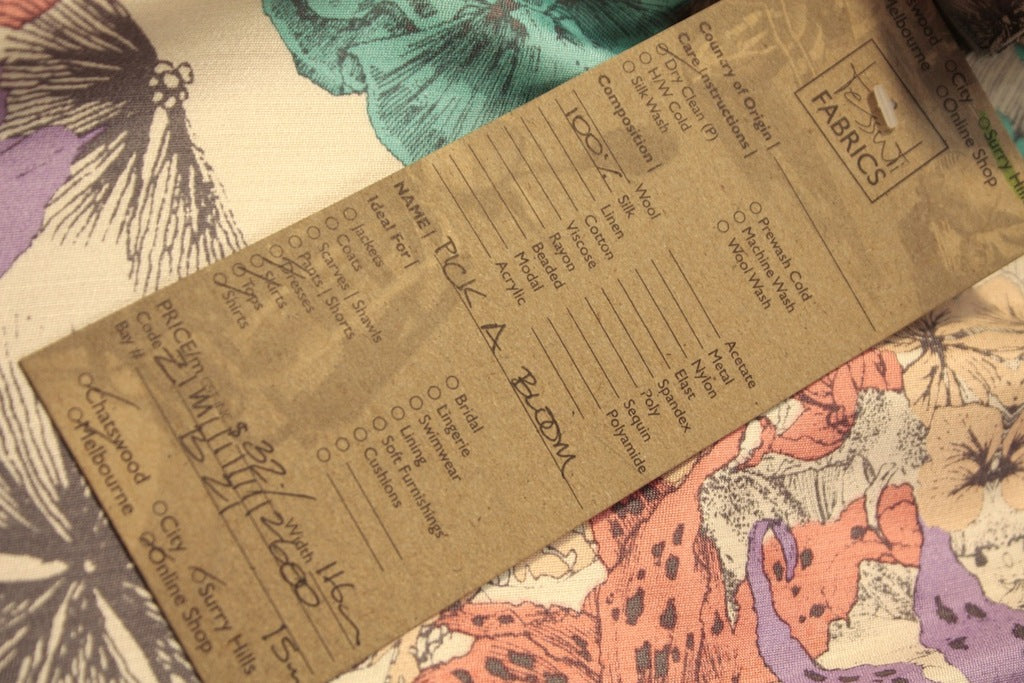 Tessuti
FABRICS
Country of Origin |
Care Instructions |
Dry Clean (P)
H/W Cold
Silk Wash
Prewash Cold
Machine Wash
Wool Wash
Composition |
100% Wool
Silk
Linen
Cotton
Viscose
Rayon
Beaded
Modal
Acrylic
Acetate
Metal
Nylon
Elast
Spandex
Poly
Sequin
Polyamide
NAME | PICK A BLOOM
Ideal For |
Jackets
Coats
Scarves | Shawls
Pants | Shorts
Dresses
Skirts
Tops
Shirts
Bridal
Lingerie
Swimwear
Lining
Soft Furnishings
Cushions
PRICE/m $32
Width
Code
Bay #
Chatswood
Melbourne
City
Online Shop
Surry Hills
Melbourne
City
Online Shop